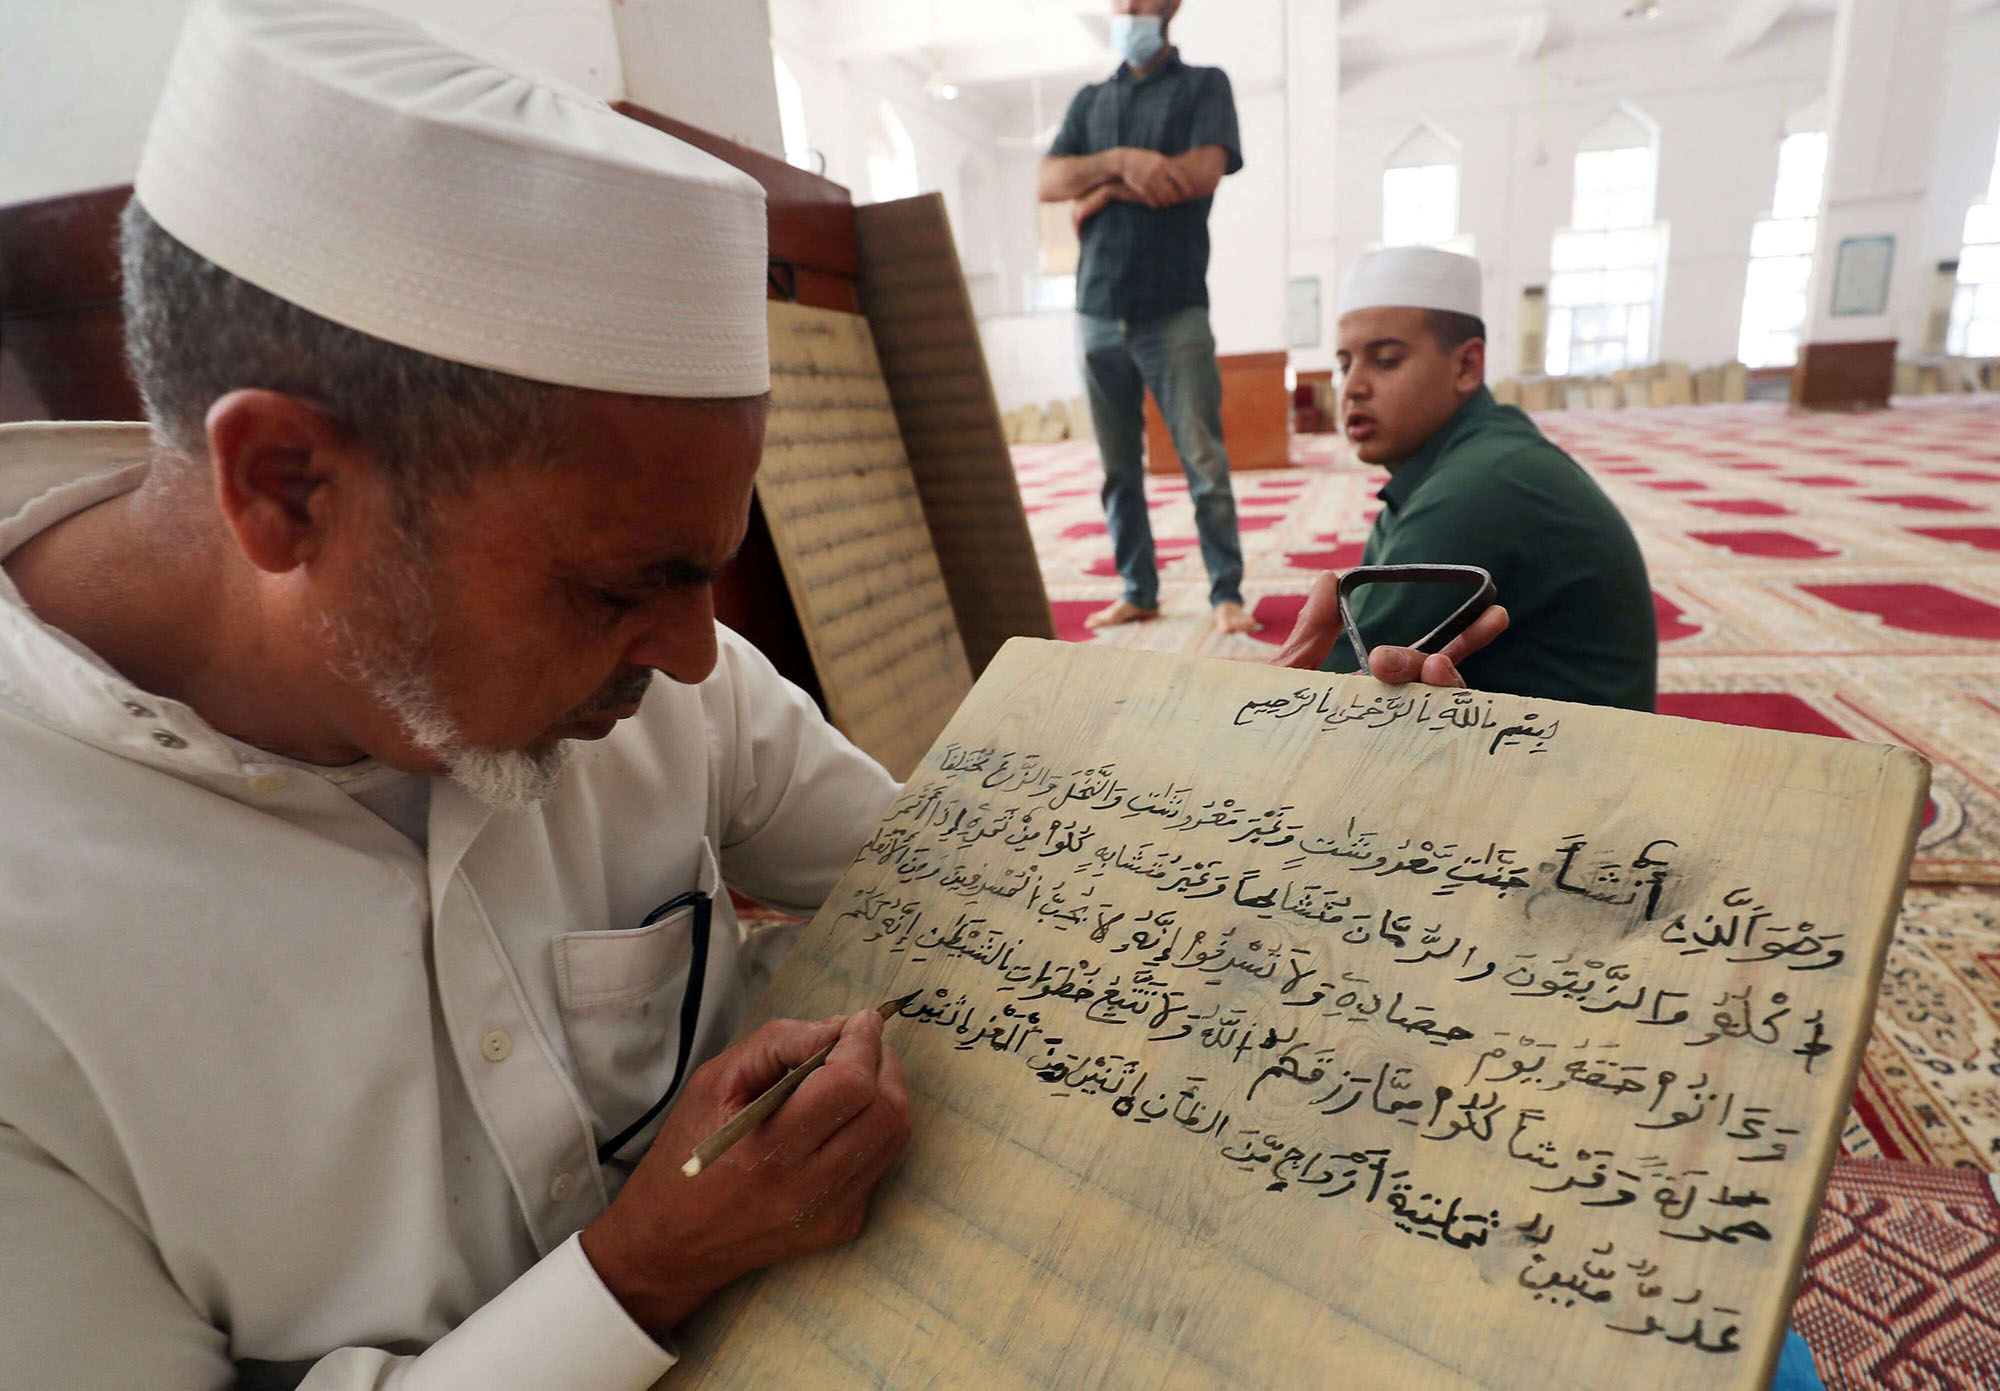 بِسْمِ اللَّهِ الرَّحْمَٰنِ الرَّحِيمِ
وَهْوَ الَّذِي أَنشَأَ جَنَّٰتٍ مَّعْرُوشَٰتٍ وَغَيْرَ مَعْرُوشَٰتٍ وَالنَّخْلَ وَالزَّرْعَ مُخْتَلِفاً
اُكْلُهُ وَالزَّيْتُونَ وَالرُّمَّانَ مُتَشَٰبِهاً وَغَيْرَ مُتَشَٰبِهٍ كُلُوا مِن ثَمَرِهِ إِذَا أَثْمَرَ
وَءَاتُوا حَقَّهُ يَوْمَ حِصَادِهِ وَلَا تُسْرِفُوا إِنَّهُ لَا يُحِبُّ الْمُسْرِفِينَ وَمِنَ الْأَنْعَٰمِ
حَمُولَةً وَفَرْشاً كُلُوا مِمَّا رَزَقَكُمُ اللَّهُ وَلَا تَتَّبِعُوا خُطْوَٰتِ الشَّيْطَٰنِ إِنَّهُ لَكُمْ
عَدُوٌّ مُّبِينٌ ثَمَٰنِيَةَ أَزْوَٰجٍ مِّنَ الضَّأْنِ اِثْنَيْنِ وَمِنَ الْمَعْزِ اِثْنَيْنِ